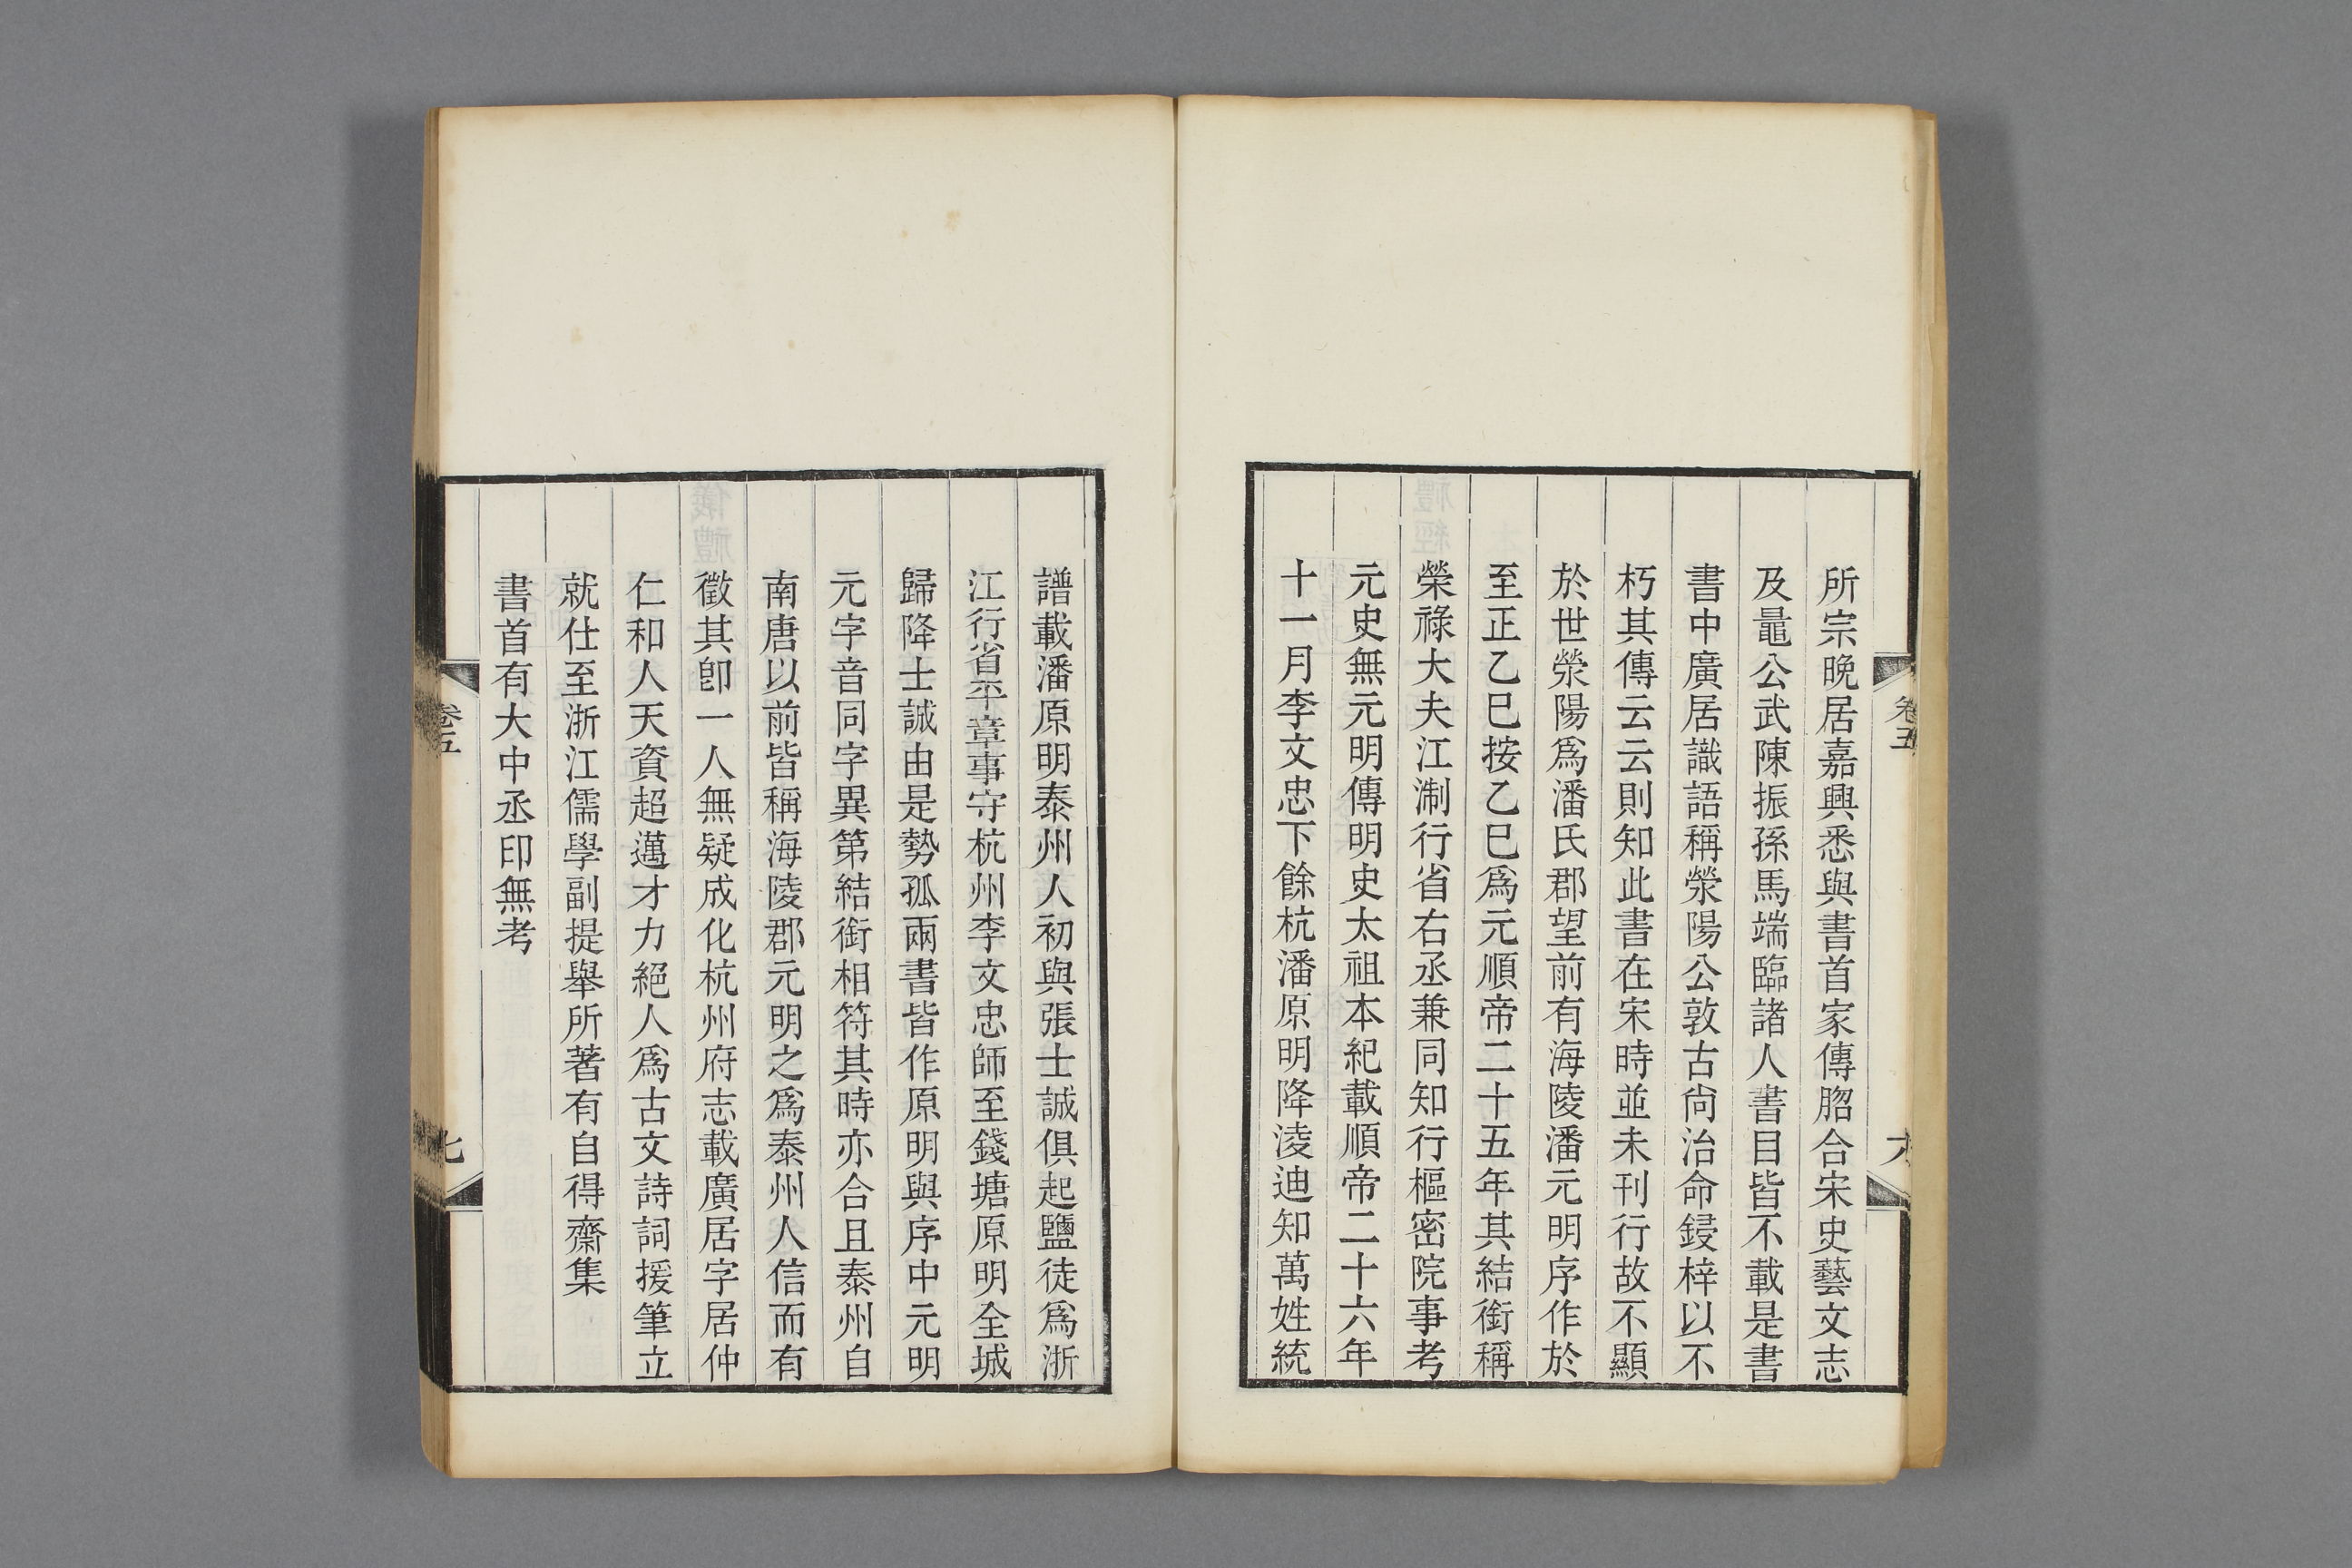 卷五
六
所宗晚居嘉興悉與書首家傳脗合宋史藝文志
及鼂公武陳振孫馬端臨諸人書目皆不載是書
書中廣居識語稱滎陽公敦古尙治命鋟梓以不
朽其傳云云則知此書在宋時並未刊行故不顯
於世滎陽爲潘氏郡望前有海陵潘元明序作於
至正乙巳按乙巳爲元順帝二十五年其結銜稱
榮祿大夫江淛行省右丞兼同知行樞密院事考
元史無元明傳明史太祖本紀載順帝二十六年
十一月李文忠下餘杭潘原明降淩迪知萬姓統
譜載潘原明泰州人初與張士誠俱起鹽徒爲浙
江行省平章事守杭州李文忠師至錢塘原明全城
歸降士誠由是勢孤兩書皆作原明與序中元明
元字音同字異第結銜相符其時亦合且泰州自
南唐以前皆稱海陵郡元明之爲泰州人信而有
徵其卽一人無疑成化杭州府志載廣居字居仲
仁和人天資超邁才力絕人爲古文詩詞援筆立
就仕至浙江儒學副提舉所著有自得齋集
書首有大中丞印無考
卷五
七